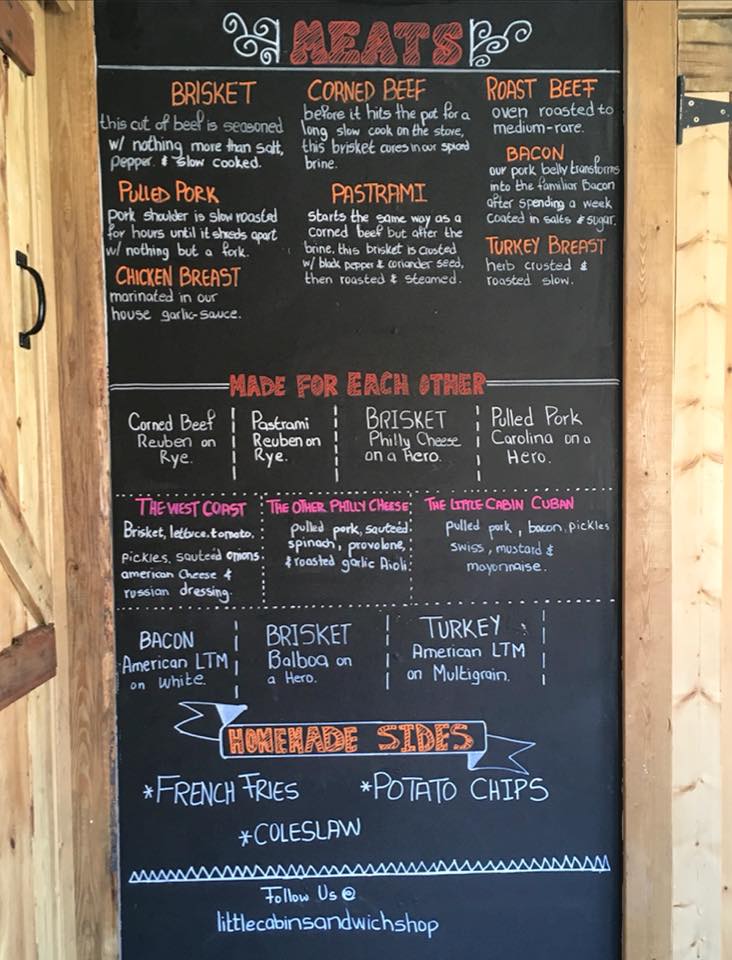 MEATS
BRISKET
this cut of beef is seasoned
w/ nothing more than salt,
pepper & slow cooked.
PULLED PORK
pork shoulder is slow roasted
for hours until it shreds apart
w/ nothing but a fork.
CHICKEN BREAST
marinated in our
house garlic-sauce.
CORNED BEEF
before it hits the pot for a
long slow cook on the stove,
this brisket cures in our spiced
brine.
PASTRAMI
starts the same way as a
corned beef but after the
brine, this brisket is crusted
w/ black pepper & coriander seed,
then roasted & steamed.
ROAST BEEF
oven roasted to
medium-rare.
BACON
our pork belly transforms
into the familiar Bacon
after spending a week
coated in salts & sugar.
TURKEY BREAST
herb crusted &
roasted slow.
MADE FOR EACH OTHER
Corned Beef
Reuben on
Rye.
Pastrami
Reuben on
Rye.
BRISKET
Philly Cheese
on a Hero.
Pulled Pork
Carolina on a
Hero.
THE WEST COAST
Brisket, lettuce, tomato,
pickles, sauteed onions
american Cheese &
russian dressing.
THE OTHER PHILLY CHEESE
pulled pork, sauteed
spinach, provolone,
& roasted garlic Aioli.
THE LITTLE CABIN CUBAN
pulled pork, bacon, pickles
swiss, mustard &
mayonnaise.
BACON
American LTM
on White.
BRISKET
Balboa on
a Hero.
TURKEY
American LTM
on Multigrain.
HOMEMADE SIDES
*FRENCH FRIES
*POTATO CHIPS
*COLESLAW
Follow Us @
littlecabinsandwichshop